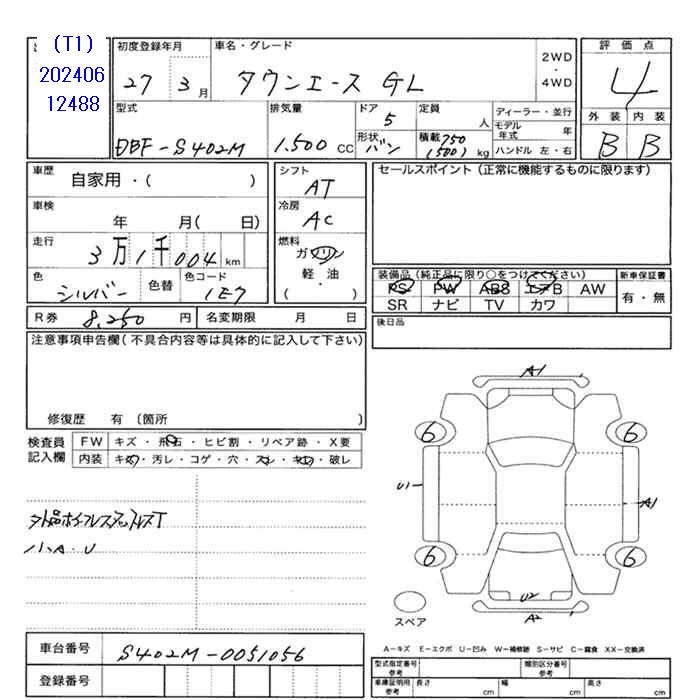 (T1)
202406
12488
初度登録年月
27 3月
車名・グレード
タウンエース GL
2WD
・
4WD
評価点
4
型式
DBF-S402M
排気量
1.500 CC
ドア
5
形状
バン
定員
人
積載 750
(500) kg
ディーラー・並行
モデル年式 年
ハンドル 左・右
外装 内装
B B
車歴
自家用・( )
車検
年 月( 日)
走行
3万1千004 km
色
シルバー
色替
色コード
1E7
シフト
AT
冷房
AC
燃料
ガソリン
軽・油
( )
セールスポイント (正常に機能するものに限ります)
装備品 (純正品に限り○をつけてください)
PS PW ABS エアB AW
SR ナビ TV カワ
新車保証書
有・無
R券 8,250 円
名変期限 月 日
後日品
注意事項申告欄(不具合内容等は具体的に記入して下さい)
修復歴 有 〔箇所 〕
検査員
記入欄
FW キズ・飛石・ヒビ割・リペア跡・X要
内装 キズ・汚レ・コゲ・穴・スレ・キレ・破レ
小A・U
A1
6 6
U1
A1
6 6
U2
A2
スペア
車台番号
S402M-0051056
登録番号
A-キズ E-エクボ U-凹み W-補修跡 S-サビ C-腐食 XX-交換済
型式指定番号
参考
類別区分番号
参考
車庫証明用
参考
長さ cm
幅 cm
高さ cm